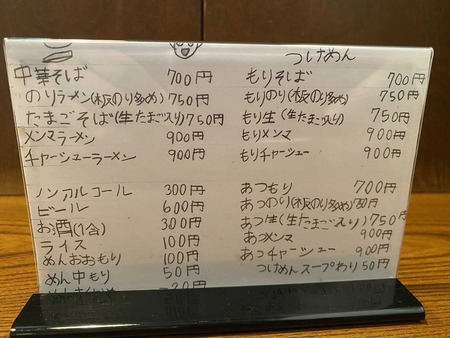 中華そば 700円
のりラメン(板のり多め) 750円
たまごそば(生たまご入り) 750円
メンマラーメン 900円
チャーシューラーメン 900円
ノンアルコール 300円
ビール 600円
お酒(1合) 300円
ライス 100円
めんおおもり 100円
めん中もり 50円
つけめん
もりそば 700円
もりのり(板のり多め) 750円
もり生(生たまご入り) 750円
もりメンマ 900円
もりチャーシュー 900円
あつもり 700円
あつのり(板のり多め)
あつ生(生たまご入り) 750円
あつメンマ 900円
あつチャーシュー 900円
つけめんスープわり 50円